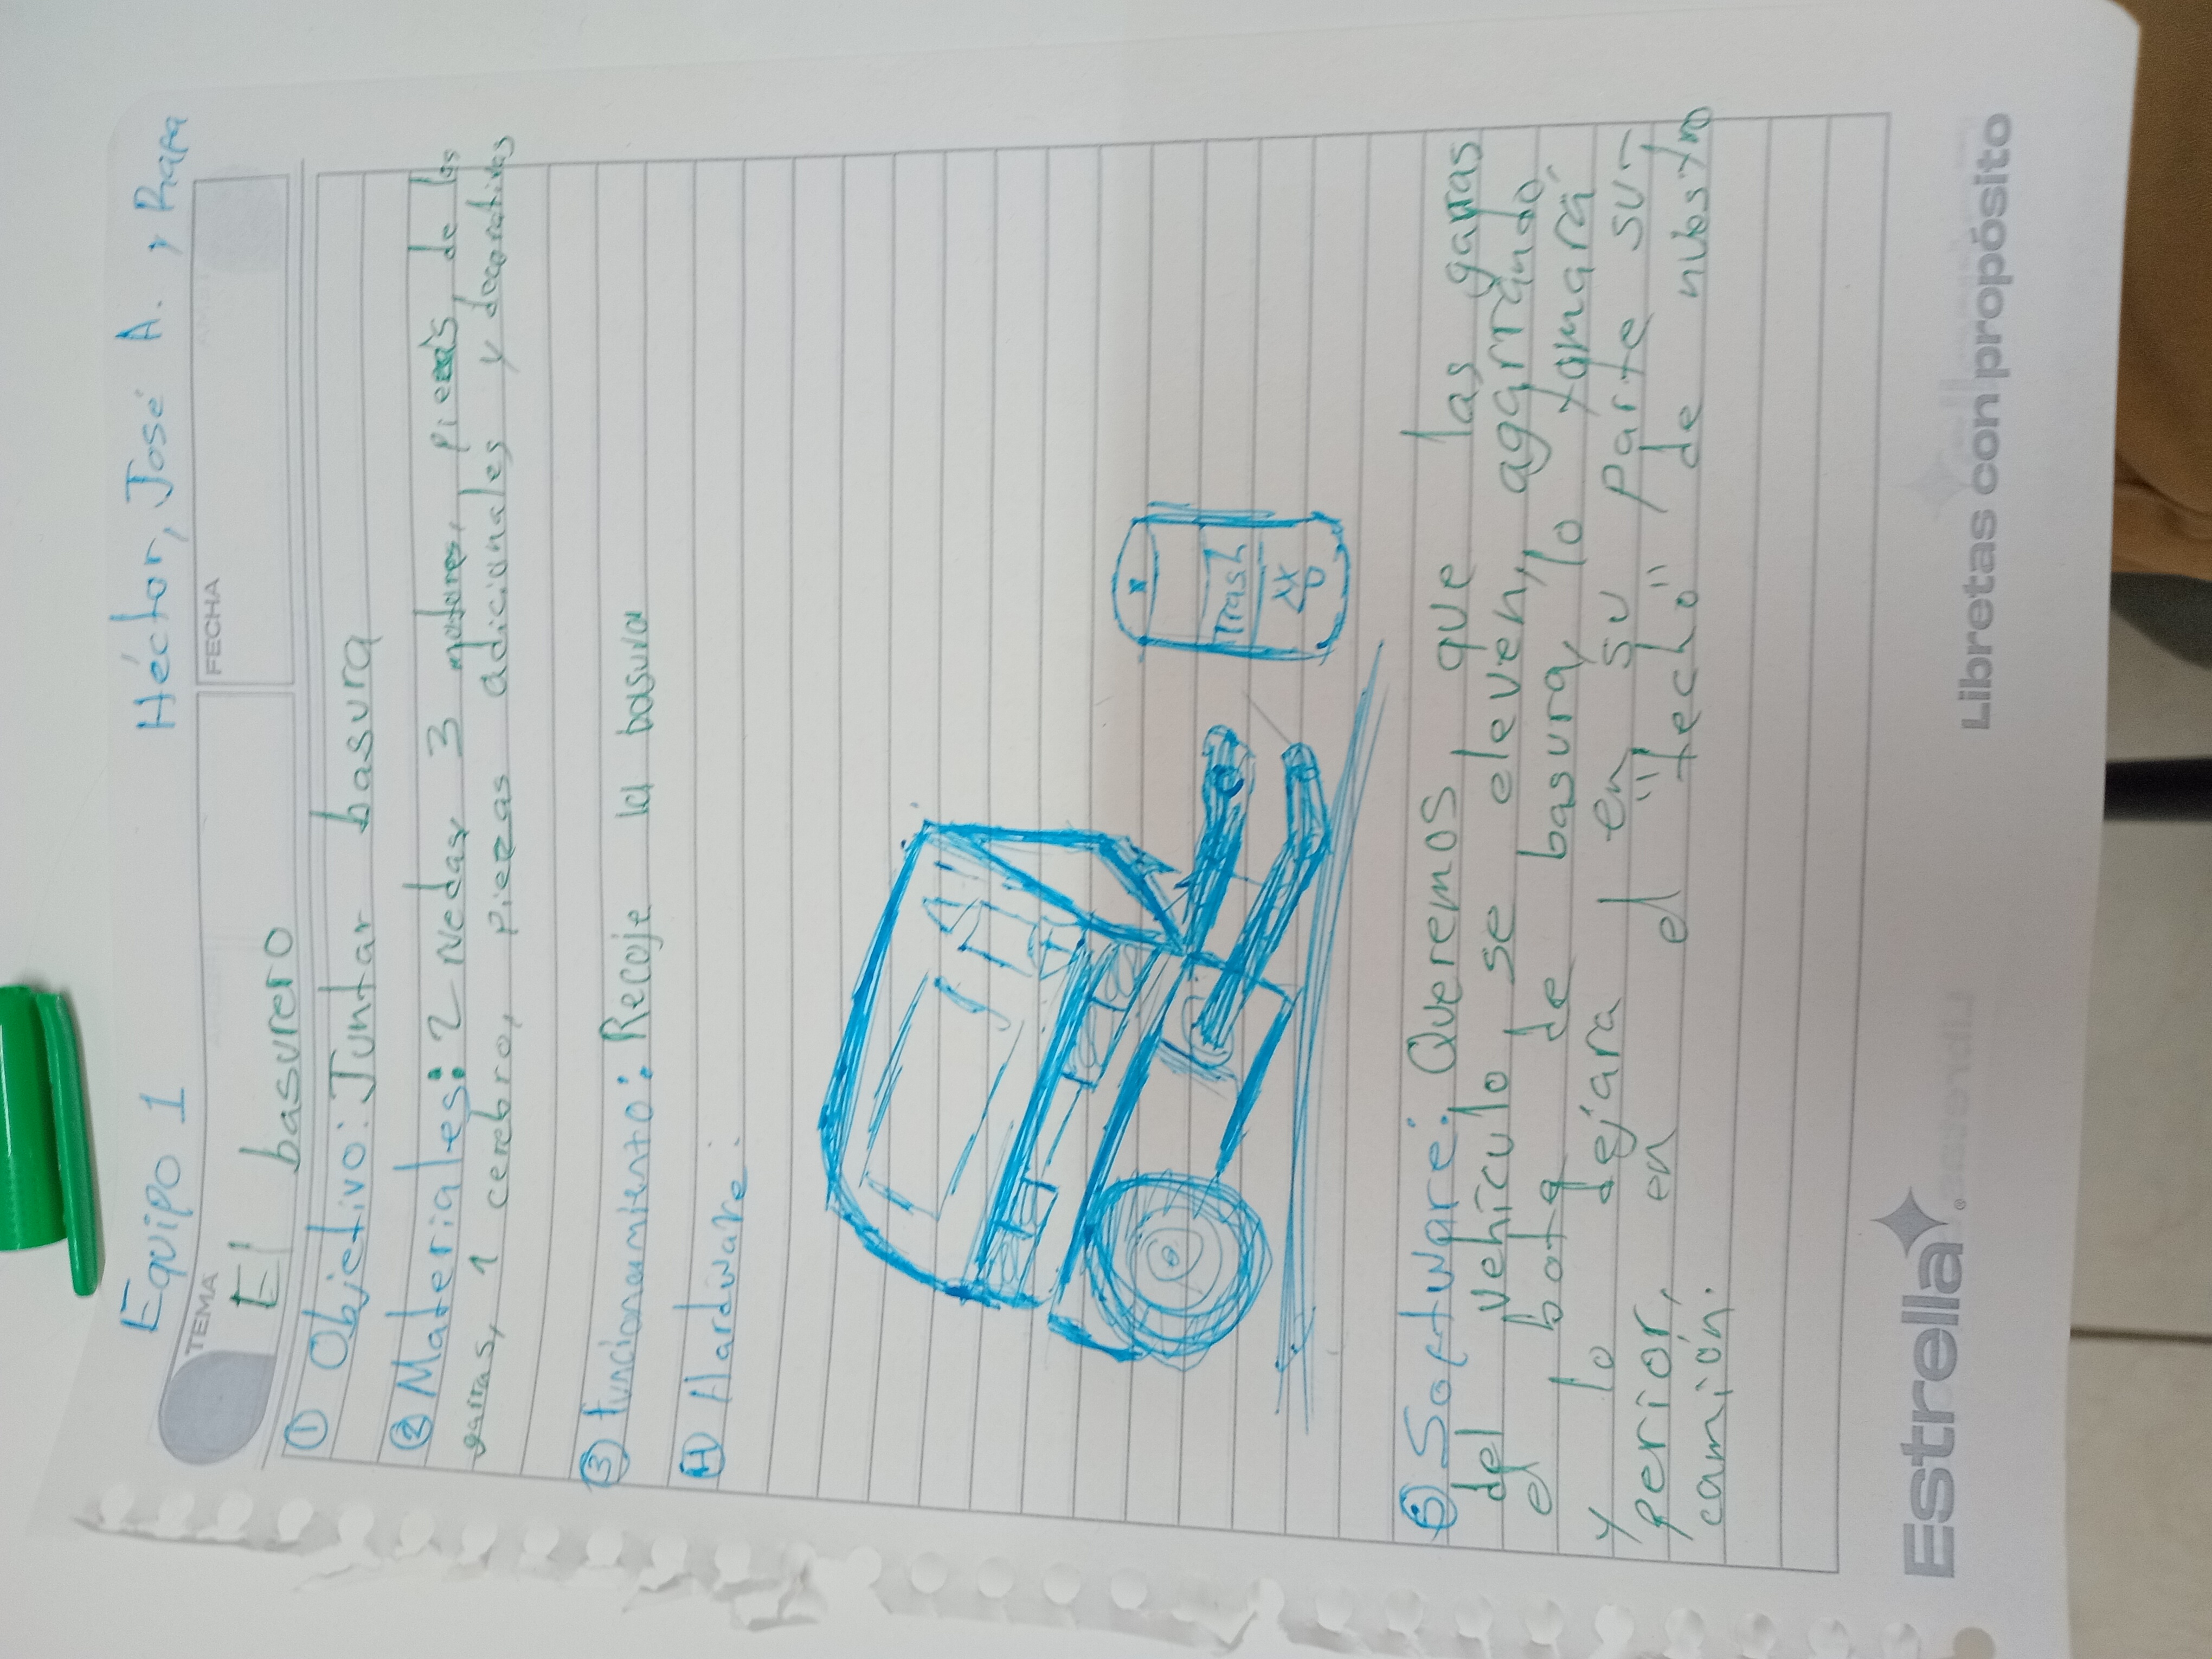 Equipo 1 Héctor, José A. y Rafa
TEMA
FECHA
El basurero
① Objetivo: Juntar basura
② Materiales: 2 ruedas, 3 motores, piezas de las
garras, 1 cerebro, piezas adicionales y decorativas
③ Funcionamiento: Recoje la basura
④ Hardware:
Trash
⑤ Software: Queremos que las garras
del vehículo se eleven, agarrando
el bote de basura, lo tomará
y lo dejara en su parte su-
perior, en el "techo" de nuestro
camión.
Estrella
Libretas con propósito